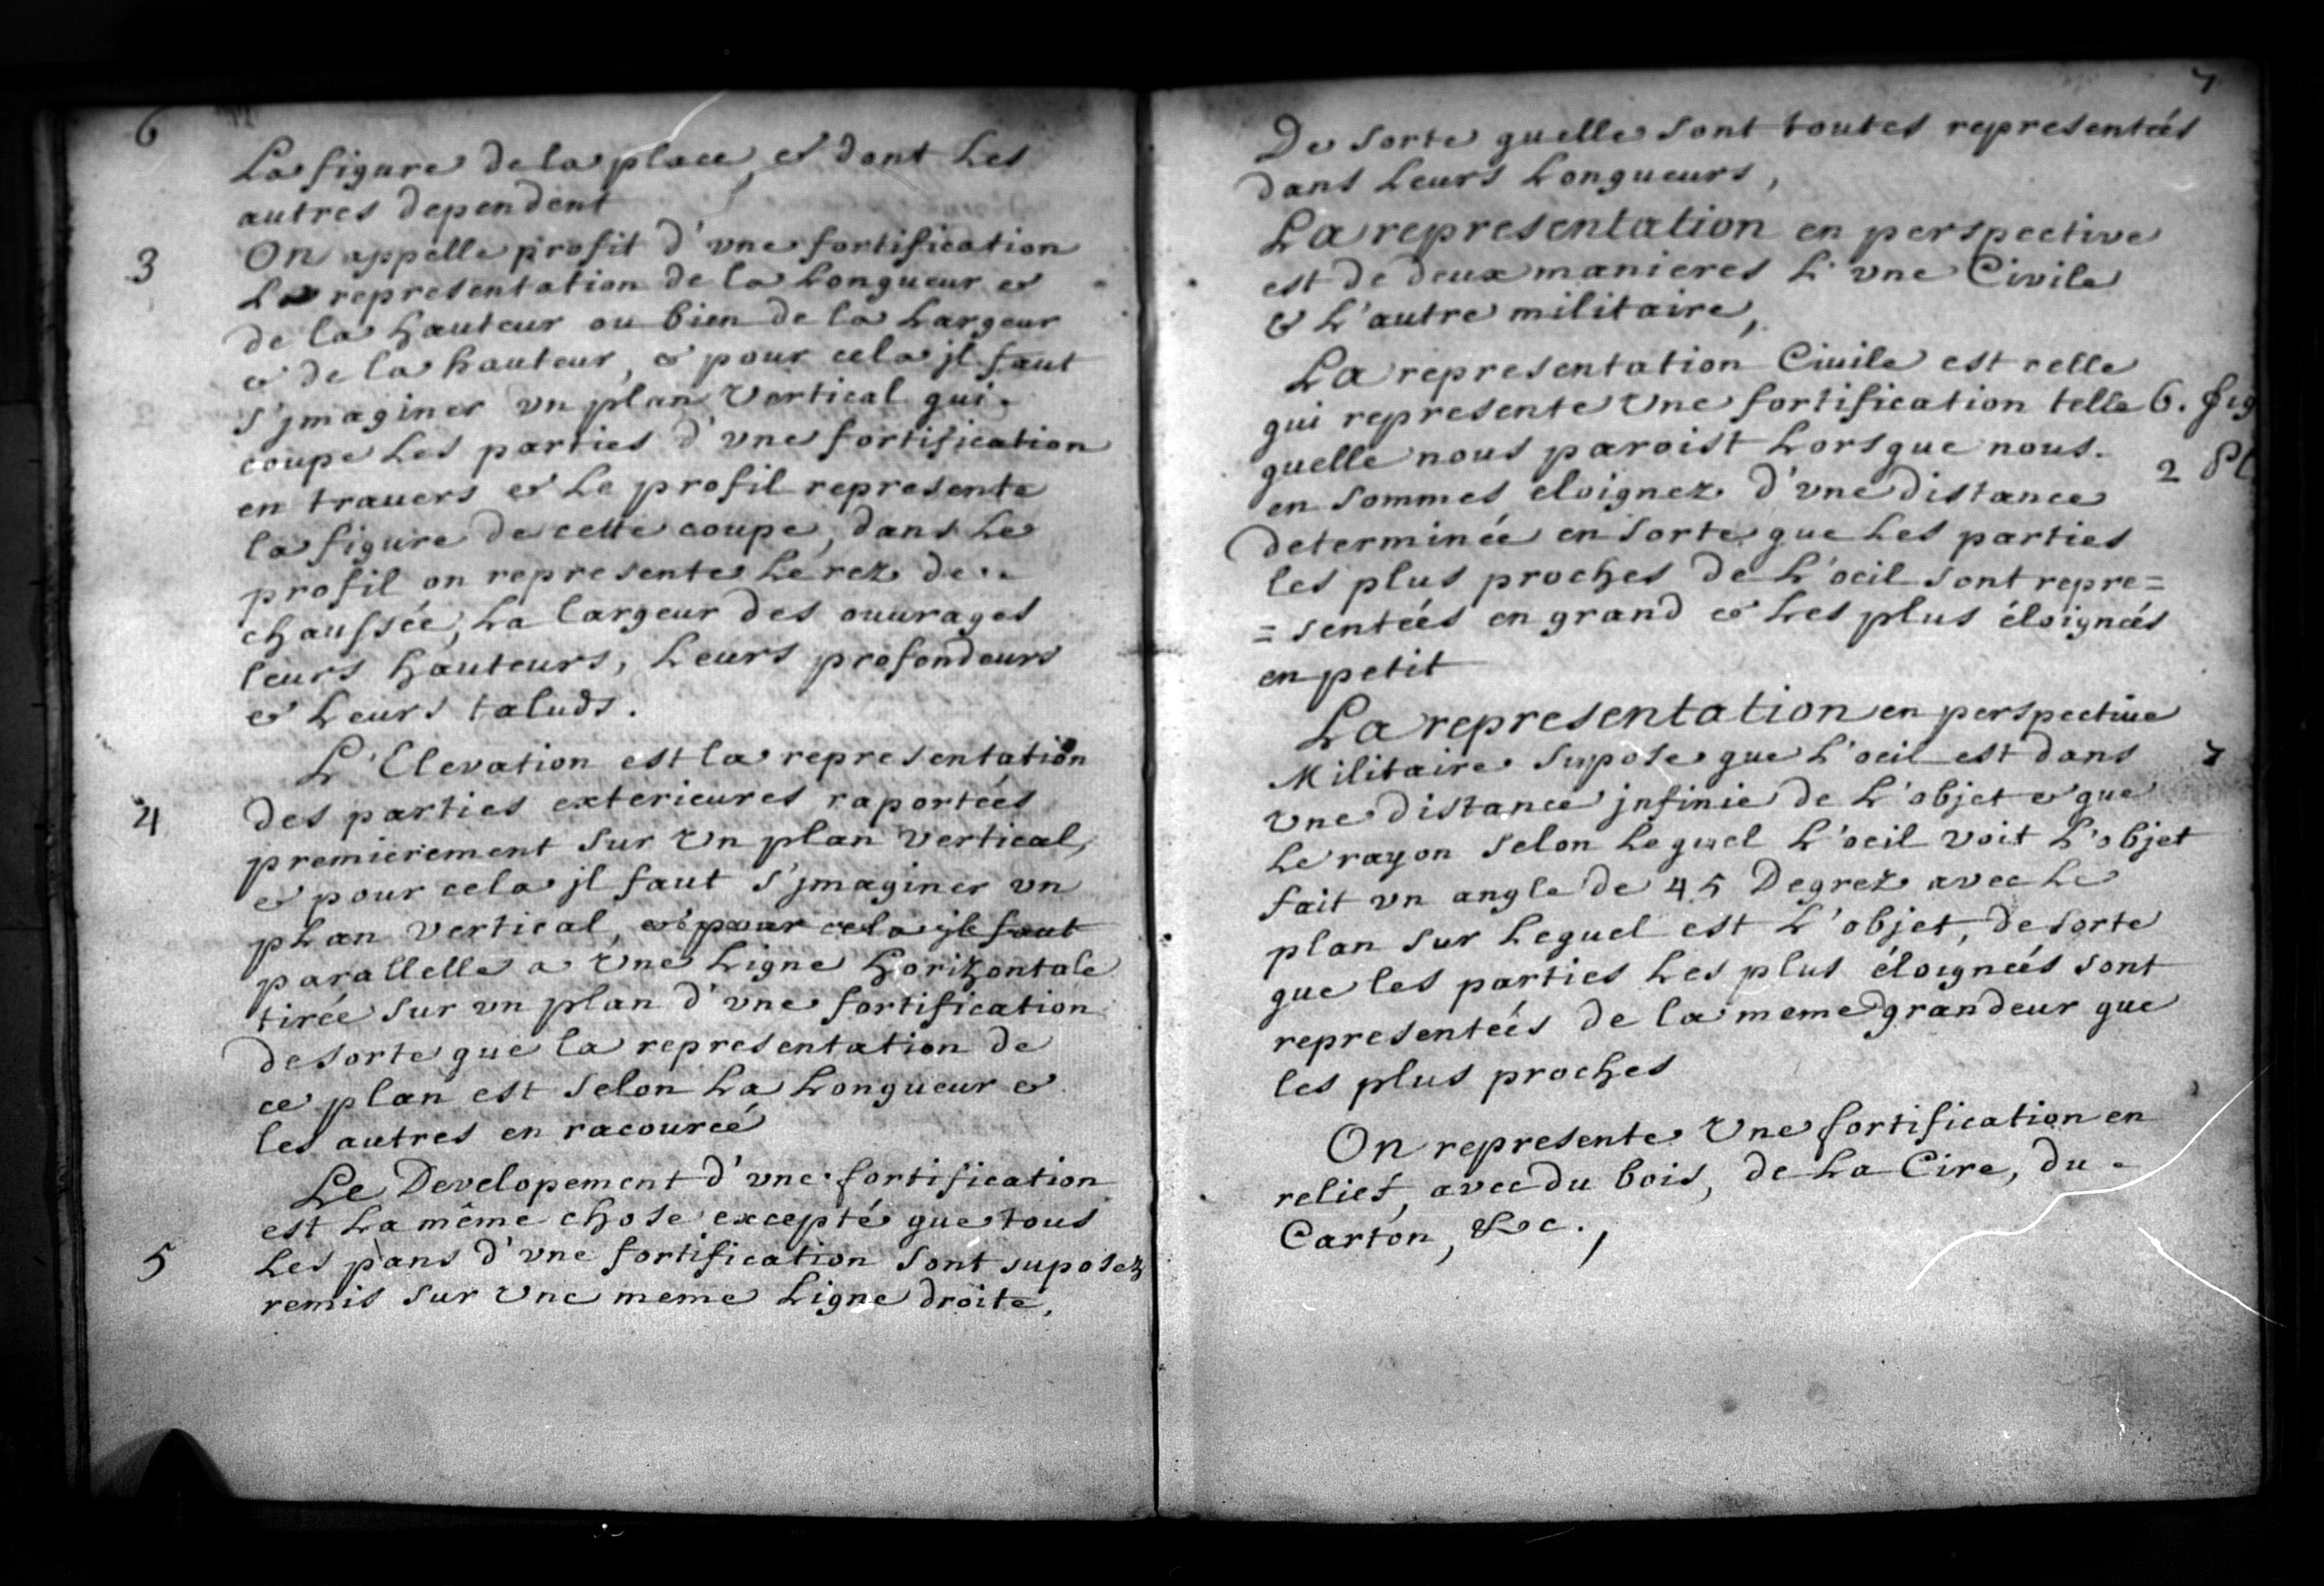 6
La figure de la place, & dont Les
autres dependent
3
On appelle profit d'vne fortification
La representation de la Longueur &
de la hauteur ou bien de la Largeur
& de la hauteur, & pour cela jl faut
s'jmaginer vn plan Vertical qui
coupe Les parties d'vne fortification
en trauers & Le profil represente
la figure de cette coupe, dans Le
profil on represente Le rez de
chaussée, La largeur des ouurages
leurs hauteurs, Leurs profondeurs
& Leurs taluds.
L'Elevation est la representation
4
des parties exterieures raportées
premierement sur Vn plan Vertical,
& pour cela jl faut s'jmaginer vn
pLan Vertical, & pour cela jl faut
parallelle a Vne Ligne horizontale
tirée sur vn plan d'vne fortification
de sorte que la representation de
ce plan est selon La Longueur &
les autres en racourcé
Le Developement d'vne fortification
est La même chose excepté que tous
5
Les pans d'vne fortification sont suposez
remis sur Vne meme Ligne droite,
7
De sorte quelle sont toutes representeés
dans Leurs Longueurs,
La representation en perspective
est de deux manieres L'vne Civile
& L'autre militaire,
La representation Ciuile est celle
qui represente Vne fortification telle 6. fig
quelle nous paroist Lorsque nous
2 Pl
en sommes eloignez d'vne distance
determinée en sorte que Les parties
les plus proches de L'oeil sont repre=
=senteés en grand & Les plus éloigneés
en petit
La representation en perspectiue
Militaire supose que L'oeil est dans
7
Vne distance jnfinie de L'objet & que
Le rayon selon Lequel L'oeil voit L'objet
fait vn angle de 45 Degrez avec Le
plan sur Lequel est L'objet, de sorte
que les parties Les plus éloigneés sont
representeés de la meme grandeur que
les plus proches
On represente Vne fortification en
relief, avec du bois, de La Cire, du
Carton, &c.,